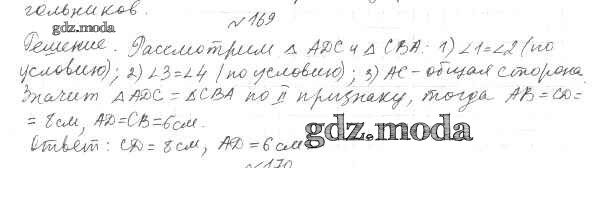 гольников.
№169
gdz.moda
Решение. Рассмотрим △ ADC и △ CBA: 1) ∠1=∠2 (по
условию); 2) ∠3=∠4 (по условию); 3) AC – общая сторона.
Значит △ADC = △CBA по II признаку, тогда AB = CD =
= 8см, AD=CB=6см.
gdz.moda
Ответ: CD = 8см, AD = 6см
№170